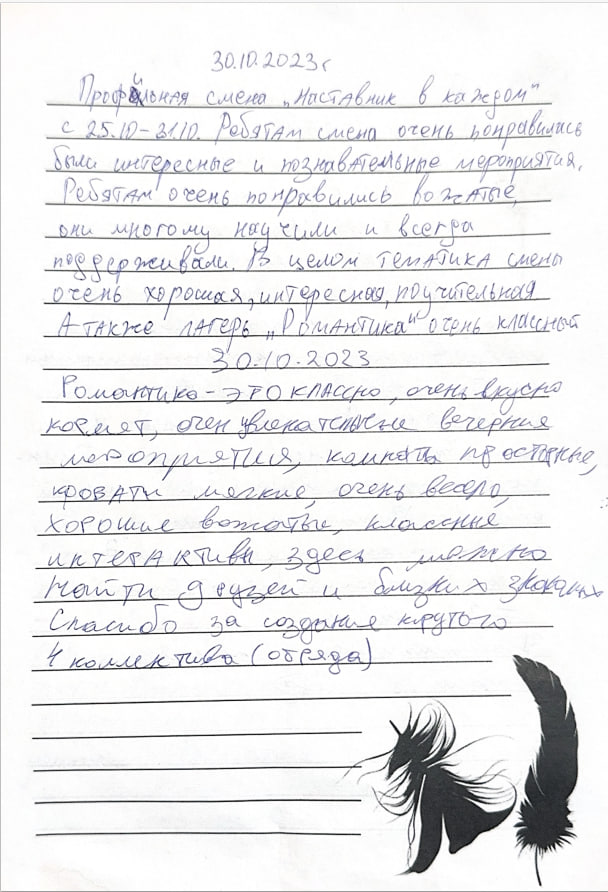 30.10.2023г
Профильная смена „Наставник в каждом"
с 25.10-31.10. Ребятам смена очень понравилась
были интересные и познавательные мероприятия.
Ребятам очень понравились вожатые,
они многому научили и всегда
поддерживали. В целом тематика смены
очень хорошая, интересная, поучительная
А также лагерь „Романтика" очень классный
30.10.2023
Романтика - это классно, очень вкусно
кормят, очен увлекательные вечерние
мероприятия, комнаты просторные,
кровати мягкие, очень весело,
хорошие вожатые, классные
интерактивы, здесь можно
найти друзей и близких знакомых
Спасибо за создание крутого
4 коллектива (отряда)